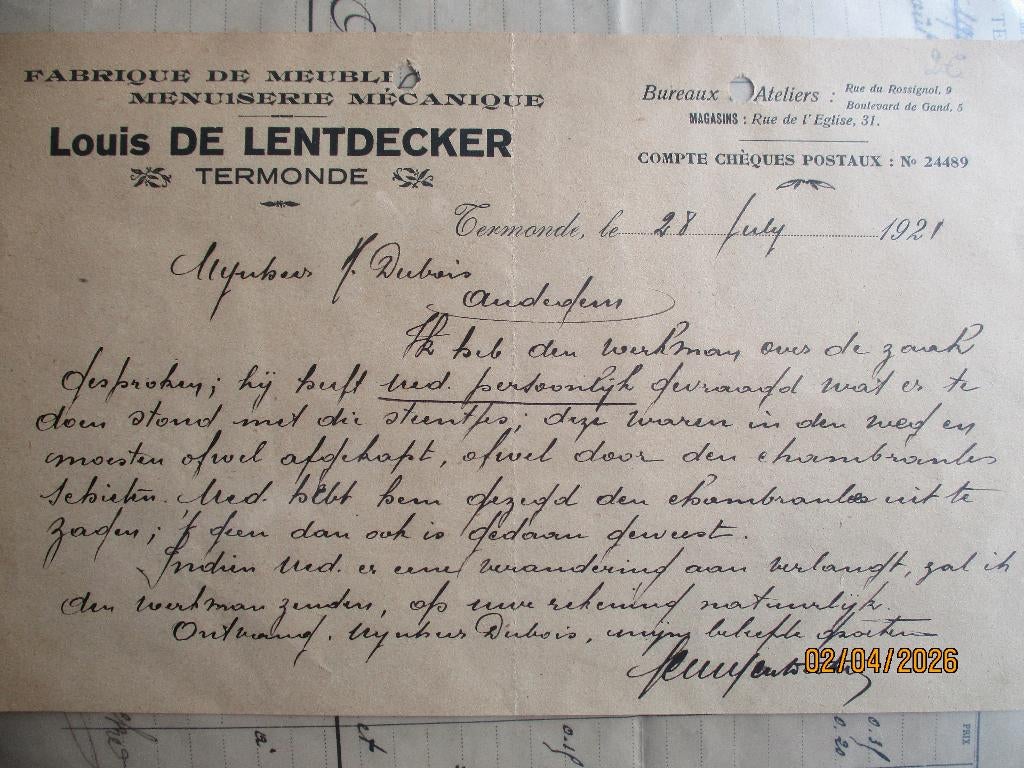 FABRIQUE DE MEUBLE
MENUISERIE MÉCANIQUE
Louis DE LENTDECKER
TERMONDE
Bureaux Ateliers : Rue du Rossignol, 9
Boulevard de Gand, 5
MAGASINS : Rue de l'Eglise, 31.
COMPTE CHÈQUES POSTAUX : No 24489
Termonde, le 28 July 1921
Mynheer Dubois
Audegem
Ik heb den werkman over de zaak
gesproken; hij heeft Ued. persoonlijk gevraagd wat er te
doen stond met die steentjes; deze waren in den weg en
moesten ofwel afgekapt, ofwel door den chambranles
schieten. Ued. hebt hem gezegd den chambranles uit te
zagen; 't geen dan ook is gedaan geweest.
Indien Ued. er eene verandering aan verlangt, zal ik
den werkman zenden, op uwe rekening natuurlijk.
Ontvang, Mynheer Dubois, mijne beleefde groeten
02/04/2026
PRIX
à
et
0.20